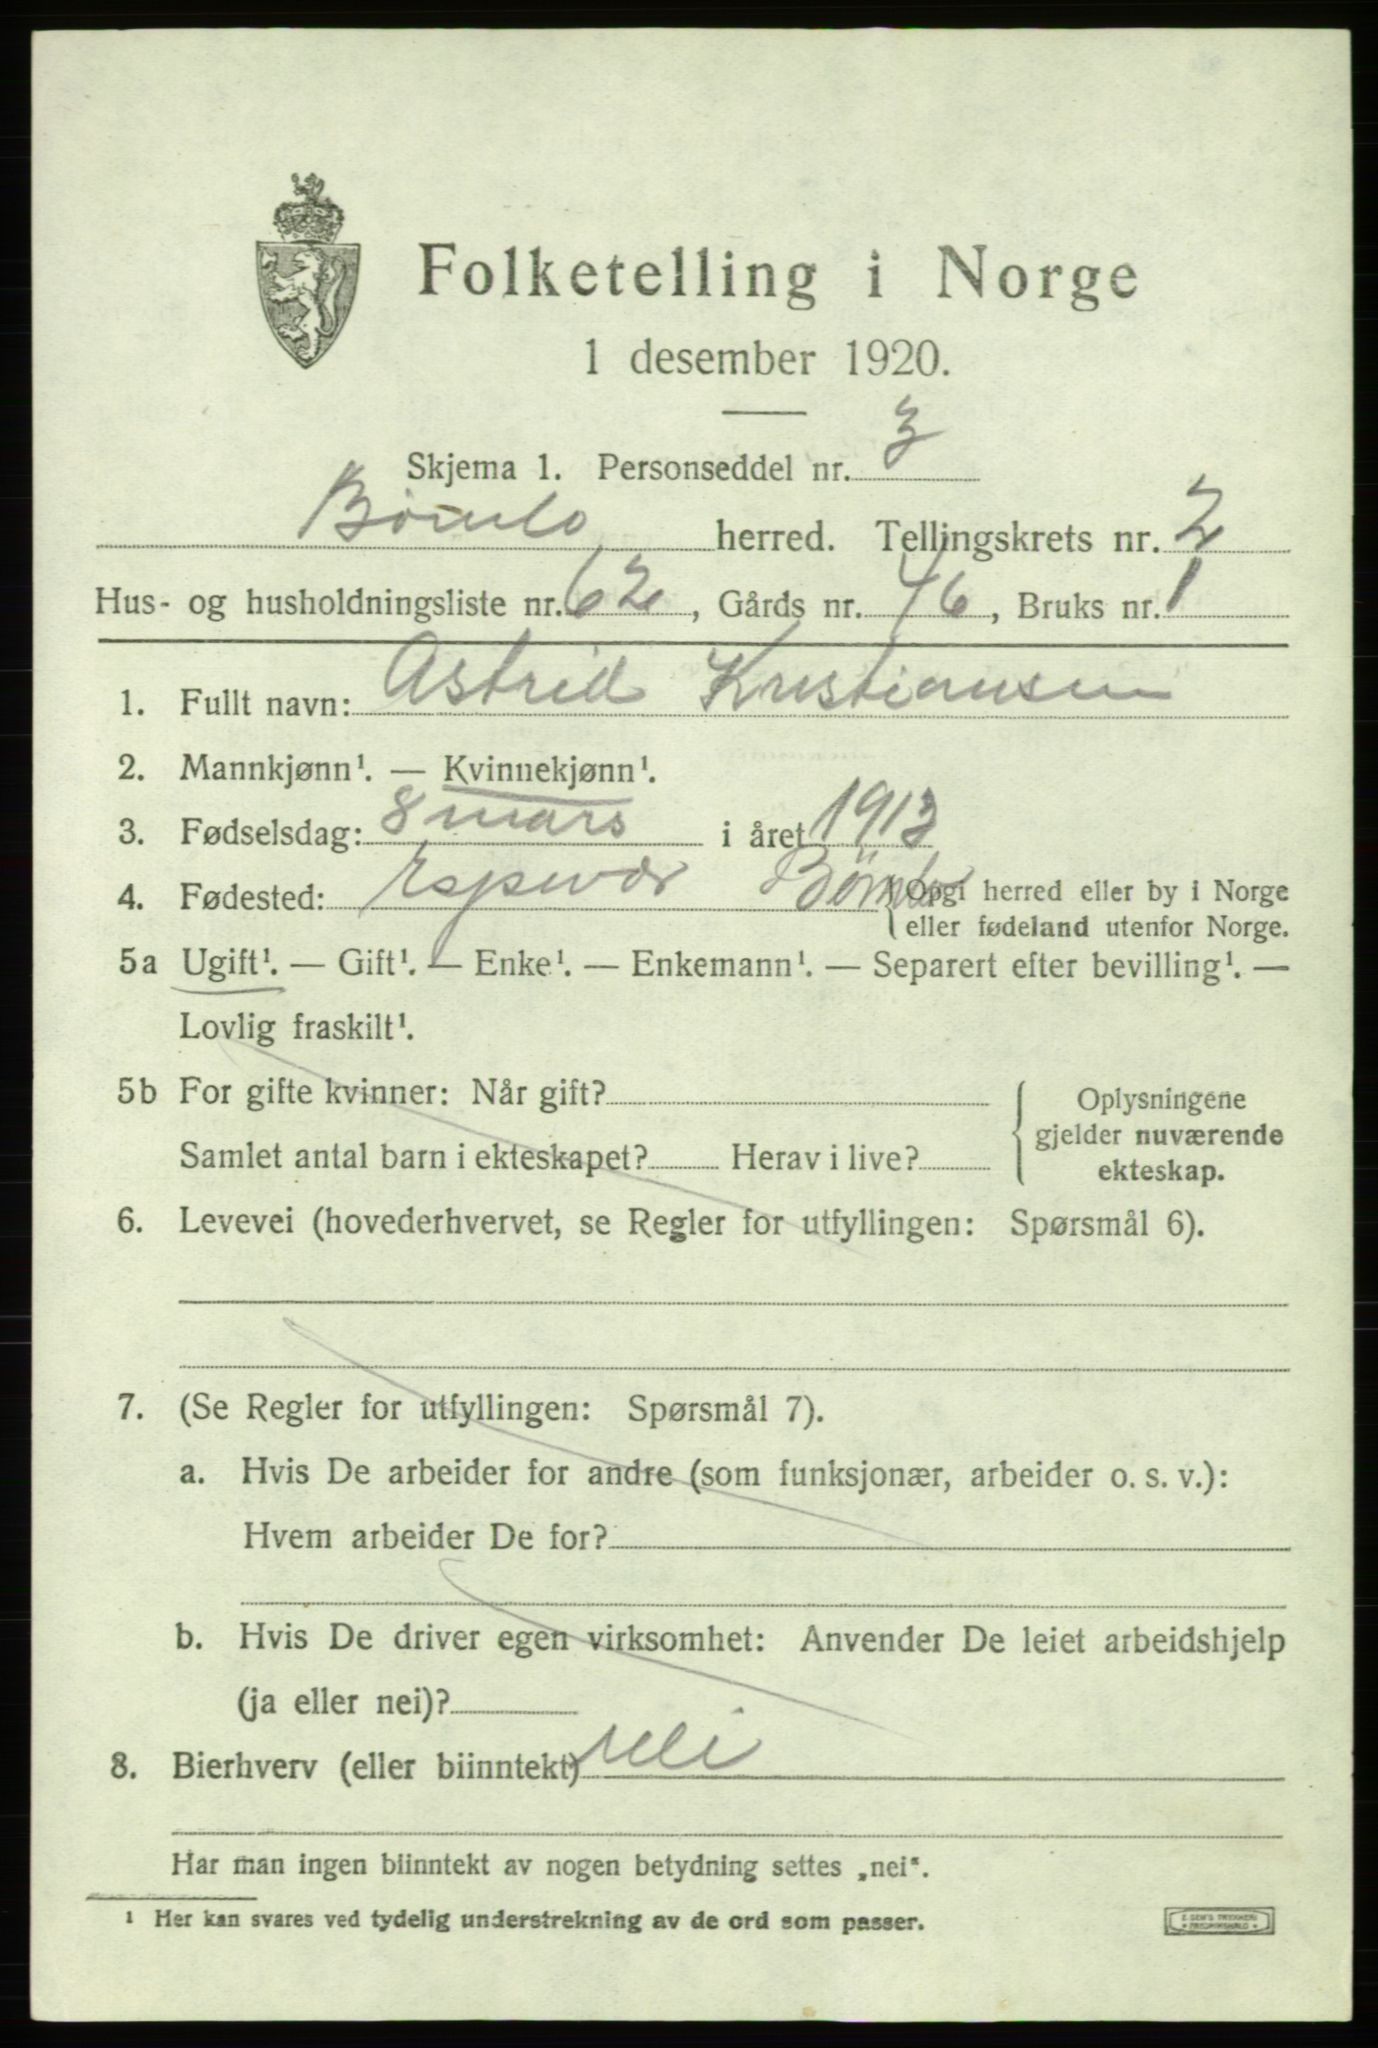 Folketelling i Norge
1 desember 1920.
Skjema 1. Personseddel nr. 3
Bømlo herred. Tellingskrets nr. 2
Hus- og husholdningsliste nr. 62, Gårds nr. 46, Bruks nr. 1
1. Fullt navn: Astrid Kristiansen
2. Mannkjønn¹. — Kvinnekjønn¹.
3. Fødselsdag: 8 mars i året 1913
4. Fødested: Espevær Bømlo {Opgi herred eller by i Norge
eller fødeland utenfor Norge.
5a Ugift¹. — Gift¹. — Enke¹. — Enkemann¹. — Separert efter bevilling¹. —
Lovlig fraskilt¹.
5b For gifte kvinner: Når gift?
Samlet antal barn i ekteskapet? Herav i live?
Oplysningene
gjelder nuværende
ekteskap.
6. Levevei (hovederhvervet, se Regler for utfyllingen: Spørsmål 6).
7. (Se Regler for utfyllingen: Spørsmål 7).
a. Hvis De arbeider for andre (som funksjonær, arbeider o. s. v.):
Hvem arbeider De for?
b. Hvis De driver egen virksomhet: Anvender De leiet arbeidshjelp
(ja eller nei)?
8. Bierhverv (eller biinntekt) nei
Har man ingen biinntekt av nogen betydning settes „nei“.
¹ Her kan svares ved tydelig understrekning av de ord som passer.